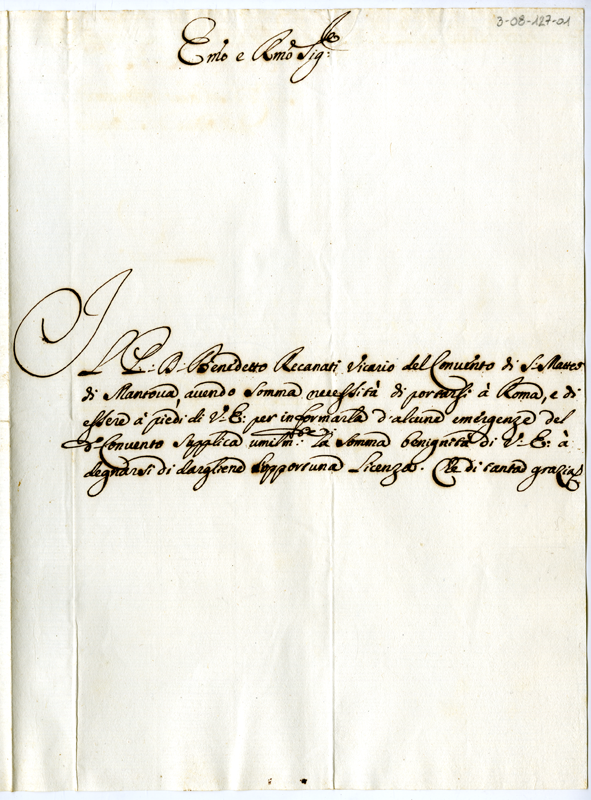 3-08-127-01
Emo e Rmo Sig:re
Il P: B: Benedetto Recanati Vicario del Convento di S: Matteo
di Mantova, avendo somma necessità di portarsi à Roma, e di
essere à piedi di V: E: per informarla d'alcune emergenze del
do Convento supplica umilm:te la somma benignità di V: E: à
degnarsi di dargliene l'opportuna Licenza. Che di tanta grazia